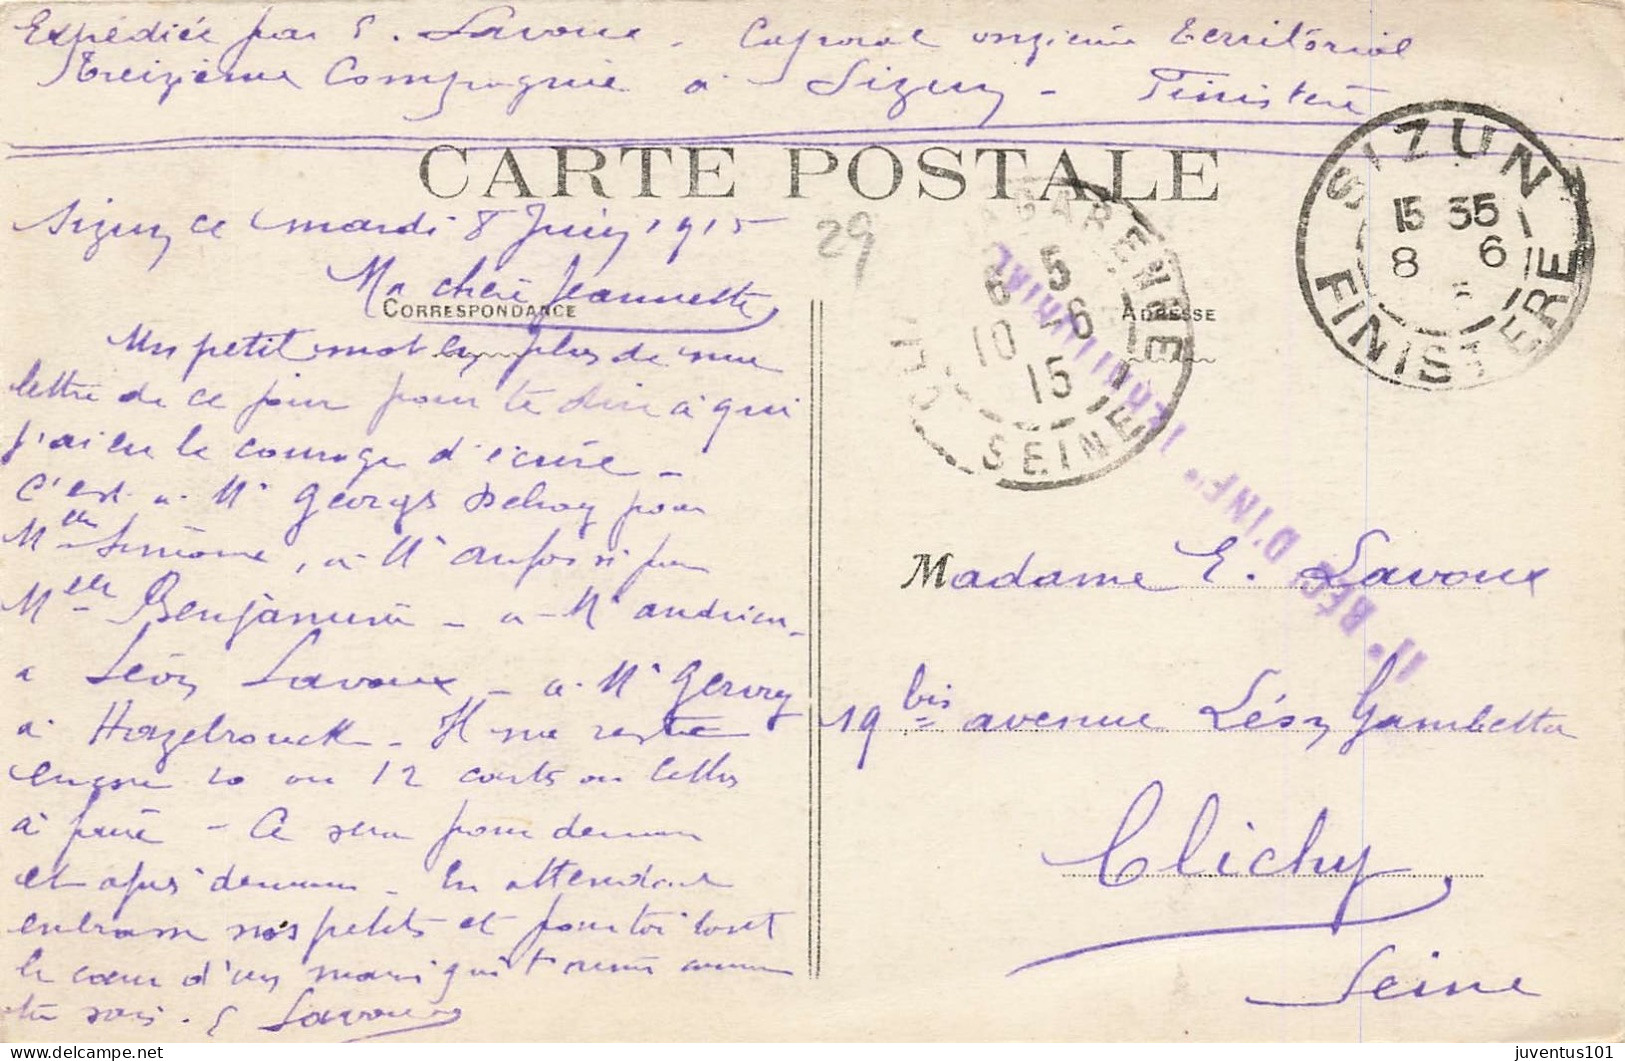 Expédiée par E. Lavoux - Caporal onzième territorial
treizième Compagnie à Sizun - Finistère
CARTE POSTALE
Sizun ce mardi 8 Juin 1915
Ma chère Jeannette
CORRESPONDANCE
Un petit mot en plus de ma
lettre de ce jour pour te dire à qui
j'ai eu le courage d'écrire -
C'est à Mr Georges Dehay pour
Melle Simone, à Mr Anfossi pour
Melle Benjamine - à Mr Andrieu -
à Léon Lavoux - à Mr Gervry
à Hazebrouck - Il me reste
encore 10 ou 12 cartes ou lettres
à faire - Ce sera pour demain
et après demain - En attendant
embrasse nos petits et pour toi tout
le cœur d'un mari qui t'aime comme
tu sais. E Lavoux
29
GARENNE
5
6
10 -6
15
SEINE
SIZUN
15 35
8 6
FINISTERE
ADRESSE
11e RÉGt D'INFie TERRITORIAL
Madame E. Lavoux
19 bis avenue Léon Gambetta
Clichy
Seine
juventus101